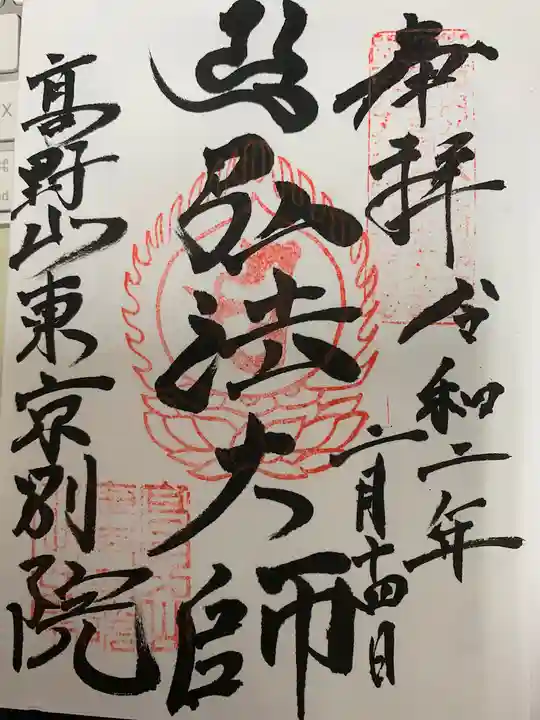 奉拝 令和二年
二月十四日
弘法大師
高野山東京別院